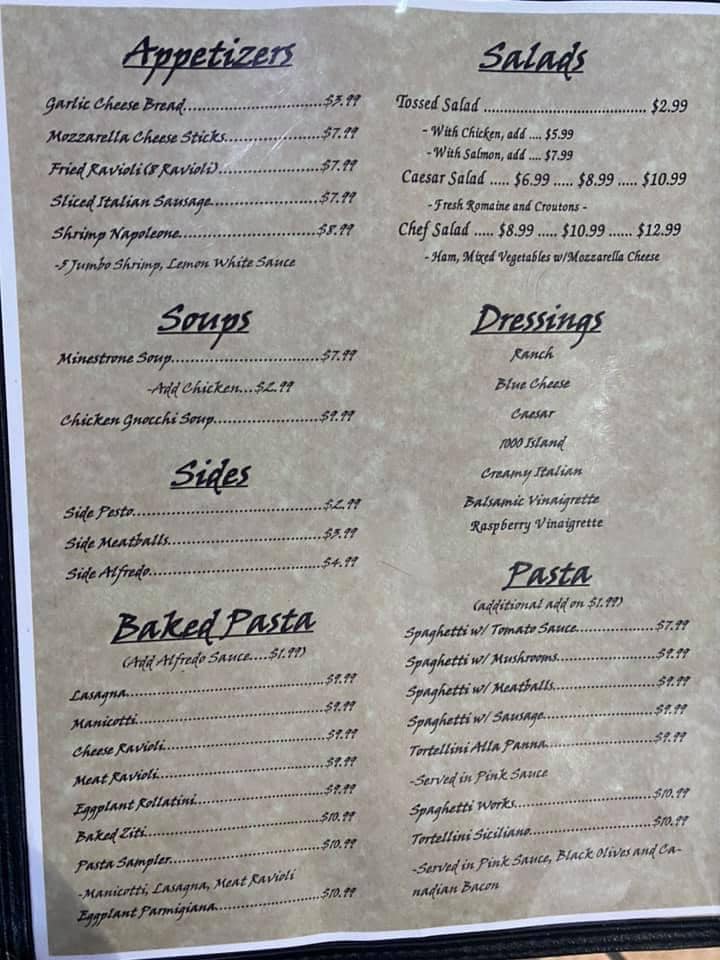 Appetizers
Garlic Cheese Bread.............................$3.99
Mozzarella Cheese Sticks....................$7.99
Fried Ravioli (8 Ravioli).....................$7.99
Sliced Italian Sausage.......................$7.99
Shrimp Napoleone............................$8.99
-5 Jumbo Shrimp, Lemon White Sauce
Soups
Minestrone Soup..............................$7.99
-Add Chicken...$2.99
Chicken Gnocchi Soup.....................$9.99
Sides
Side Pesto.......................................$2.99
Side Meatballs.................................$3.99
Side Alfredo....................................$4.99
Baked Pasta
(Add Alfredo Sauce....$1.99)
Lasagna..........................................$9.99
Manicotti........................................$9.99
Cheese Ravioli.................................$9.99
Meat Ravioli....................................$9.99
Eggplant Rollatini............................$9.99
Baked Ziti.......................................$10.99
Pasta Sampler.................................$10.99
-Manicotti, Lasagna, Meat Ravioli
Eggplant Parmigiana.......................$10.99
Salads
Tossed Salad ..................................... $2.99
- With Chicken, add .... $5.99
- With Salmon, add .... $7.99
Caesar Salad ..... $6.99 ..... $8.99 ..... $10.99
- Fresh Romaine and Croutons -
Chef Salad ..... $8.99 ..... $10.99 ...... $12.99
- Ham, Mixed Vegetables w/Mozzarella Cheese
Dressings
Ranch
Blue Cheese
Caesar
1000 Island
Creamy Italian
Balsamic Vinaigrette
Raspberry Vinaigrette
Pasta
(additional add on $1.99)
Spaghetti w/ Tomato Sauce....................$7.99
Spaghetti w/ Mushrooms.......................$9.99
Spaghetti w/ Meatballs.........................$9.99
Spaghetti w/ Sausage...........................$9.99
Tortellini Alla Panna...........................$9.99
-Served in Pink Sauce
Spaghetti Works..................................$10.99
Tortellini Siciliano...............................$10.99
-Served in Pink Sauce, Black Olives and Ca-
nadian Bacon